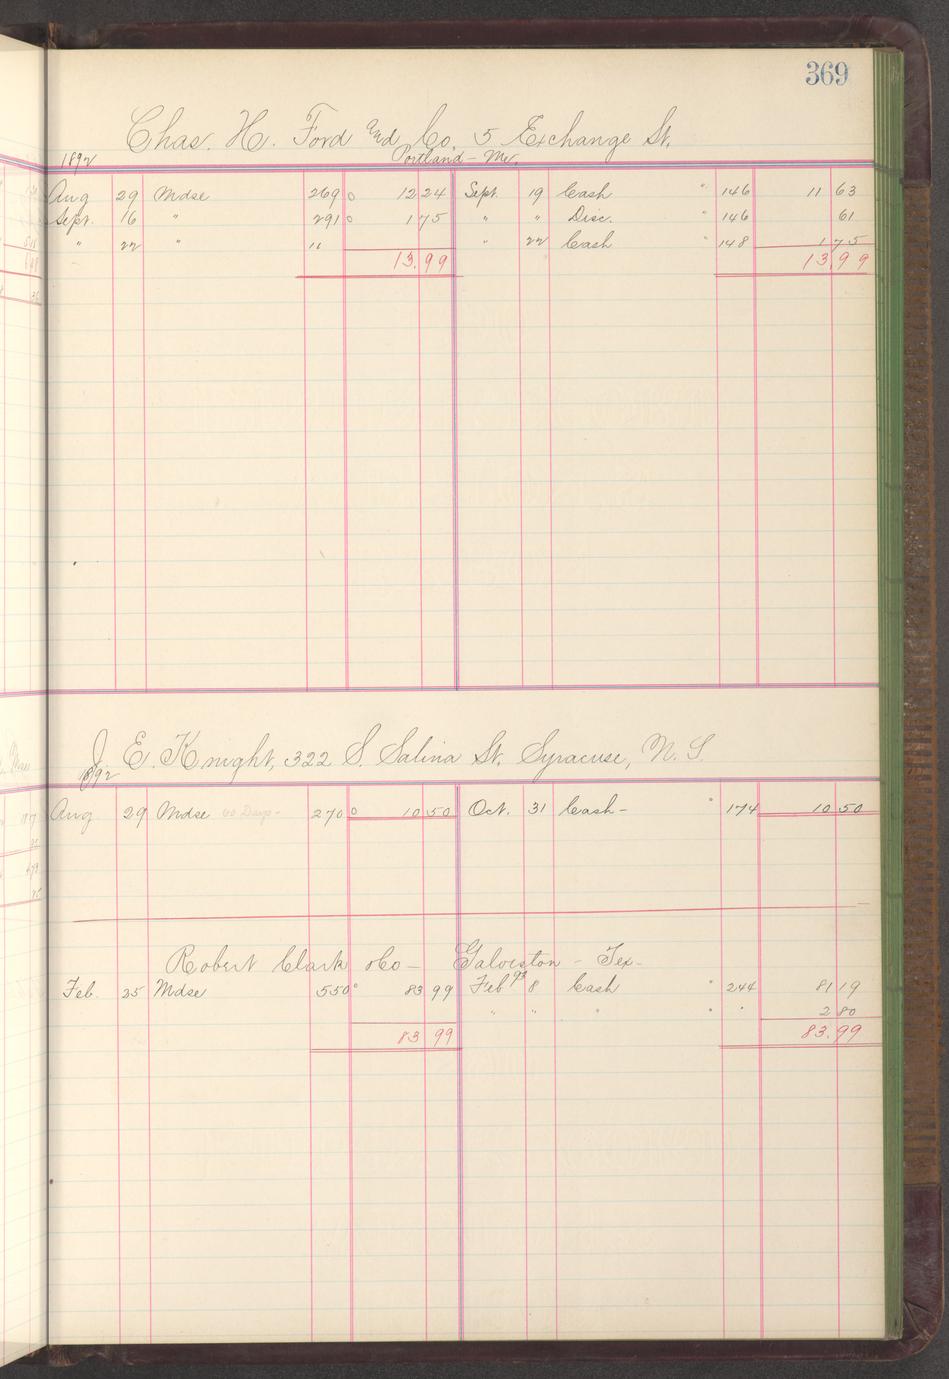 369
Chas. H. Ford and Co. 5 Exchange St.
Portland - Me.
1892
Aug 29 Mdse 269 0 12 24 Sept. 19 Cash " 146 11 63
Sept. 16 " 291 0 1 75 " " Disc. " 146 61
" 22 " " " 22 Cash " 148 1 75
13.99 13.99
J. E. Knight, 322 S. Salina St. Syracuse, N. Y.
1892
Aug 29 Mdse 60 Days - 270 0 10 50 Oct. 31 Cash - " 174 10 50
Robert Clark & Co - Galveston - Tex -
Feb. 25 Mdse 550 0 83 99 Feb 93 8 Cash " 244 81 19
" " " " " 2 80
83 99 83.99